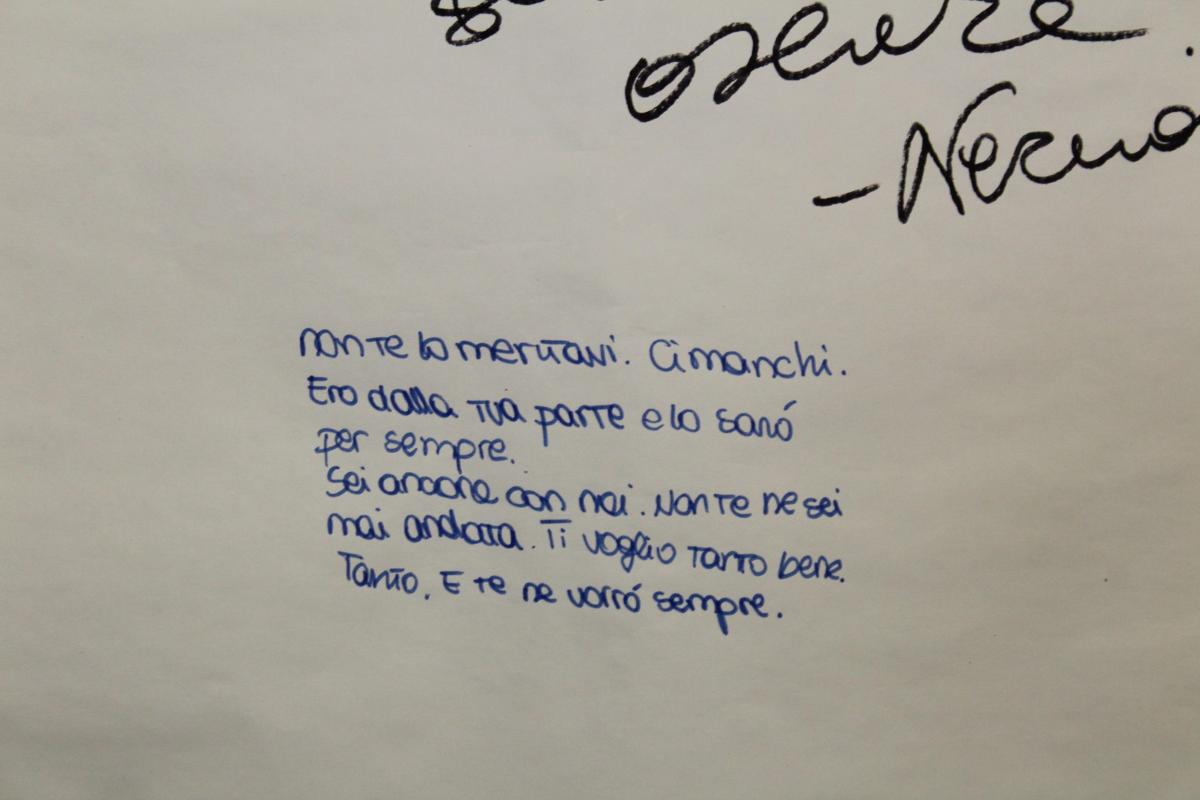 osare
non te lo meritavi. Ci manchi.
Ero dalla tua parte e lo sarò
per sempre.
Sei ancora con noi. Non te ne sei
mai andata. Ti voglio tanto bene.
Tanto. E te ne vorrò sempre.